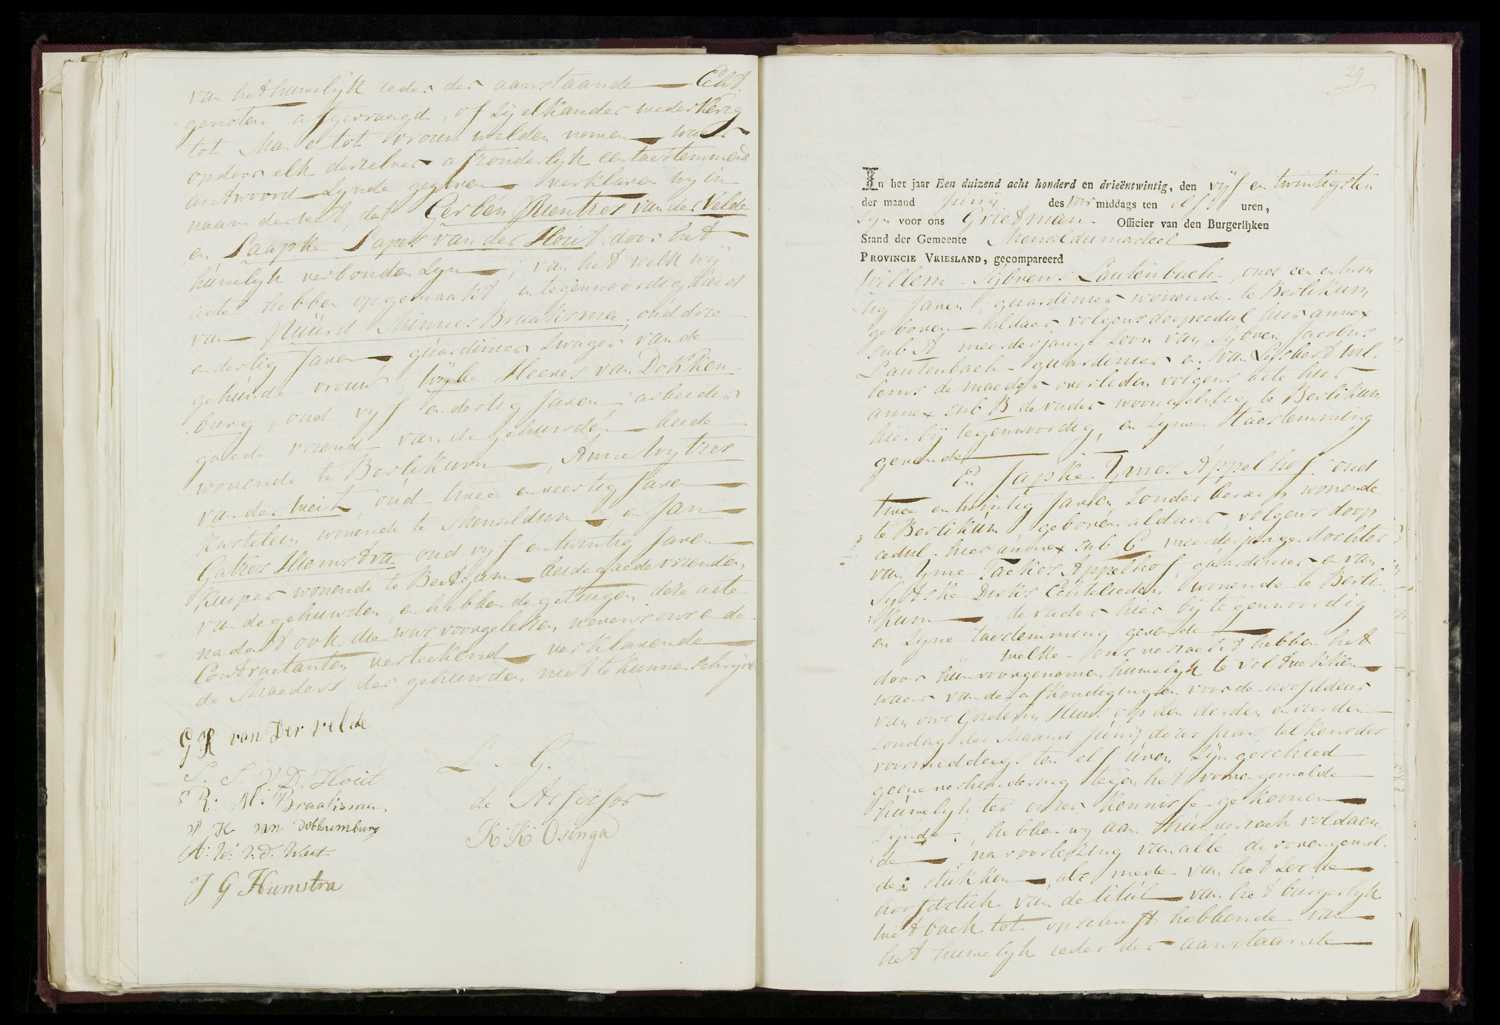 van het huwelijk ieder der aanstaande Echt
genoten afgevraagd, of zij elkander wederkerig
tot Man en tot Vrouw wilden nemen, waar
op door elk derzelver afzonderlijk een toestemmend
antwoord zynde gegeven verklaren wy in
naam der wet, dat Gerben Rientzes van der Velde
en Jaapke Japiks van der Hout door het
huwelyk verbonden zyn, van het welk wy
acte hebben opgemaakt in tegenwoordigheid
van Minnes Braaksma, oud drie
en dertig Jaren gardenier zwager van de
gehuwde vrouw, Heeres van Dokkum
burg, oud vyf en dertig Jaren arbeider
goede vriend van de gehuwden beide
wonende te Berlikum, Anne Wytzes
van der Weit, oud twee en veertig Jaren
Kastelein wonende te Menaldum en Jan
Gatzes Humstra oud vyf en twintig Jaren
Kuiper wonende te Beetgum beide goede vrienden
van de gehuwden, en hebben de getuigen deze acte
na dat ook die was voorgelezen, nevens ons en de
Contractanten vertekend, verklarende
de Moeders der gehuwden niet te kunnen schrijven
G R van Der velde
J. J. V. D. Hout
R. M. Braaksma
H van dokkumburg
A. W. V. D. Weit
J G Humstra
L. G.
de Assessor
K. K. Osinga
29
In het jaar Een duizend acht honderd en drieëntwintig, den vyf en twintigsten
der maand Juny des voormiddags ten elf uren,
zyn voor ons Grietman Officier van den Burgerlijken
Stand der Gemeente Menaldumadeel
PROVINCIE VRIESLAND, gecompareerd
Willem Sybrens Lautenbach, oud een en twin
tig Jaren, gardenier wonende te Berlikum
geboren aldaar volgens doopcedul hier annex
sub A meerderjarige zoon van Sybren Jacobus
Lautenbach gardenier en van Lysbert
lems de moeder overleden volgens acte hier
annex sub B de vader woonachtig te Berlikum
hier bij tegenwoordig, en zyne toestemming
gevende
En Japke Ymes Appelhof oud
twee en twintig Jaren zonder beroep wonende
te Berlikum geboren aldaar volgens doop
cedul hier annex sub C meerderjarige dochter
van Yme Taekes Appelhof, gardenier en van
Sytske Dirks Echtelieden, wonende te Berli
kum de vader hier bij tegenwoordig
en zyne toestemming gevende
welke ons verzocht hebben het
door hun voorgenomen huwelyk te voltrekken
waar van de afkondigingen voor de hoofddeur
van ons Gemeente Huis op den derden en vierden
zondag der Maand Juny dezes Jaars telkens des
voormiddags ten elf uren, zyn geschied
geene verhindering tegen het voorgemelde
huwelyk ter onzer kennisse gekomen
zynde, hebben wy aan hun verzoek voldoen
de, na voorlezing van alle de vorengemel
de stukken, als mede van het zesde
hoofdstuk van de titul van het burgerlyk
wetboek tot opschrift hebbende van
het huwelyk ieder der aanstaande